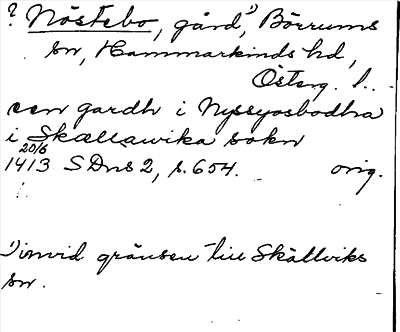 ? Nöstebo, gård,¹⁾ Börrums
sn, Hammarkinds hd,
Österg. l.
een gardh i Nyssyosbodha
i Skællawika sokn
1413 20/6 SDns 2, s. 654. orig.
¹⁾ invid gränsen till Skällviks
sn.